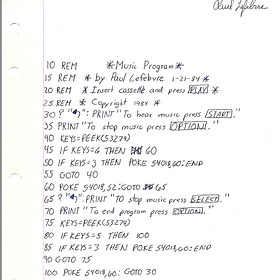 Paul Lefebvre
10 REM *Music Program*
15 REM * by Paul Lefebvre 1-21-84 *
20 REM * Insert cassette and press PLAY *
25 REM * Copyright 1984 *
30 ? "": PRINT "To hear music press START."
35 PRINT "To stop music press OPTION."
40 KEYS=PEEK(53279)
45 IF KEYS=6 THEN 60
50 IF KEYS=3 THEN POKE 54018,60:END
55 GOTO 40
60 POKE 54018,52:GOTO 65
65 ? "": PRINT "To stop music press SELECT."
70 PRINT "To end program press OPTION."
75 KEYS=PEEK(53279)
80 IF KEYS=5 THEN 100
85 IF KEYS=3 THEN POKE 54018,60:END
90 GOTO 75
100 POKE 54018,60: GOTO 30